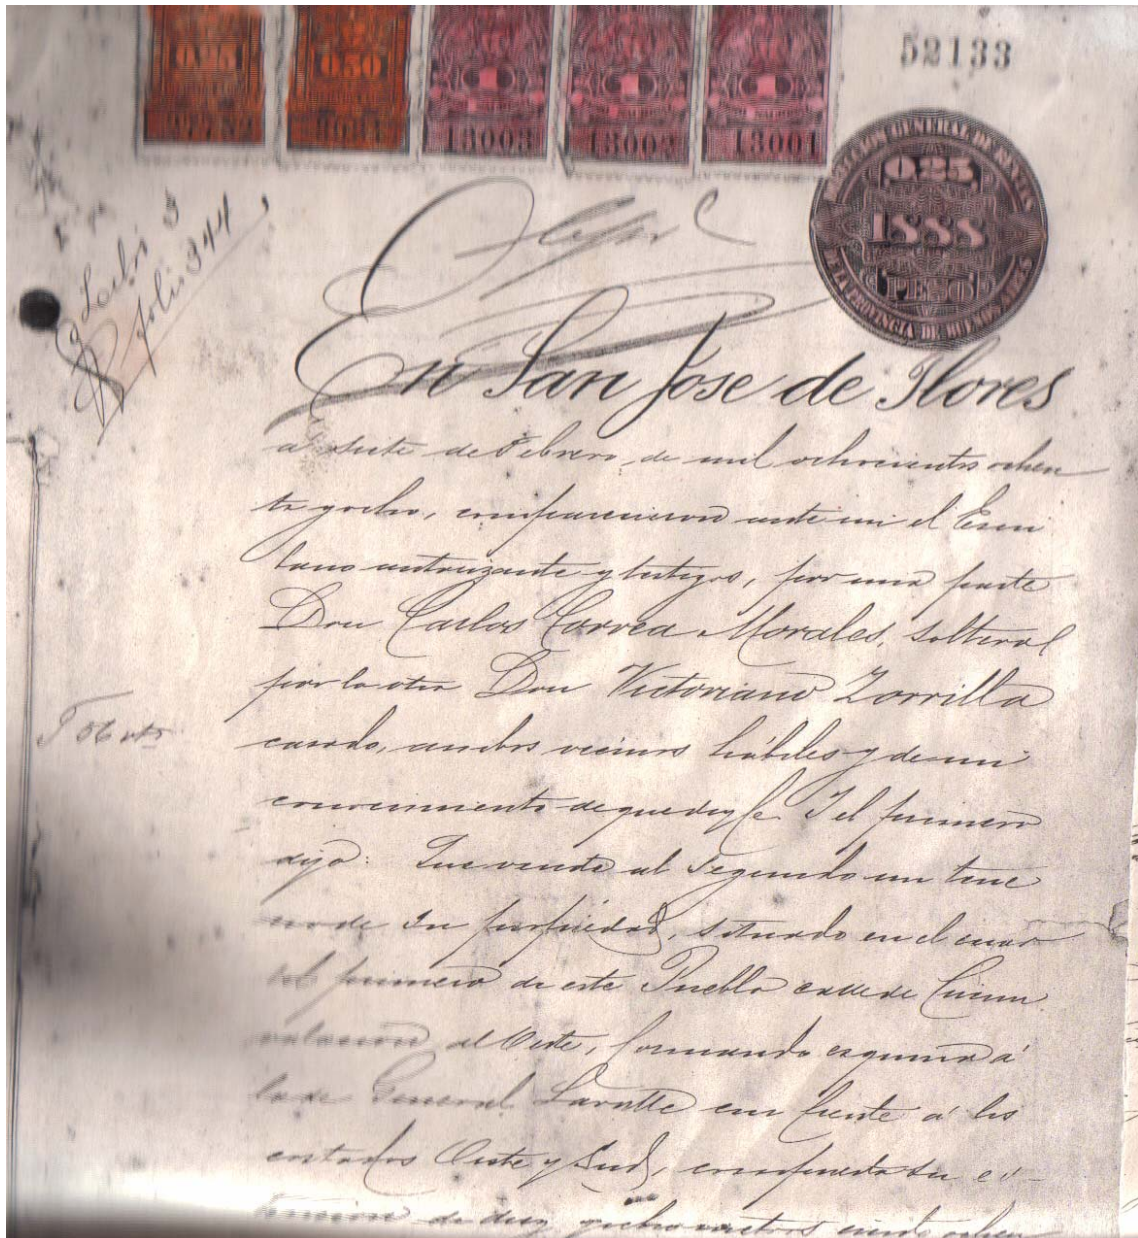 0.50
18003
18002
18001
52133
DIRECCION GENERAL DE RENTAS
025
1888
PESO
DE LA PROVINCIA DE BUENOS AIRES
Folio 344
En San Jose de Flores
a siete de Febrero de mil ochocientos ochen
ta y ocho, comparecieron ante mi el Escri
bano autorizante y testigos, por una parte
Don Carlos Correa Morales, soltero y
por la otra Don Victoriano Zorrilla
casado, ambos vecinos hábiles y de mi
conocimiento de que doy fe Y el primero
dijo: Que vende al Segundo un terre
no de su propiedad, situado en el cuar
tel primero de este Pueblo calle de Circun
valacion al Oeste, formando esquina á
la de General Lavalle con frente á los
costados Oeste y Sud, compuesto su es-
tension de diez y ocho metros ciento ochen